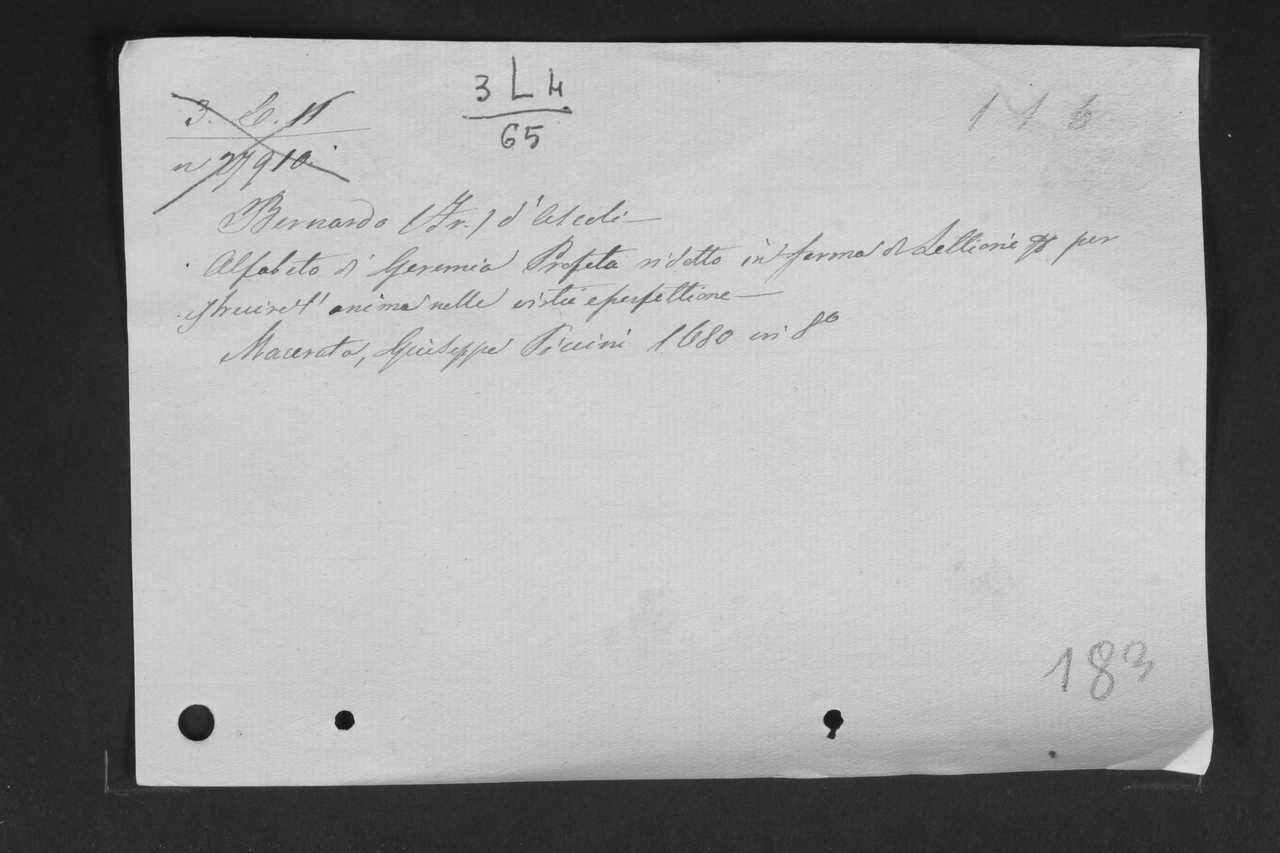 3 L 4
65
3. C. 11
n 27910.
1 1 6
Bernardo (Fr.) d'Ascoli —
Alfabeto di Geremia Profeta ridotto in forma di Lettioni per
istruire l'anima nelle virtù e perfettione —
Macerata, Giuseppe Piccini 1680 in 8º
183